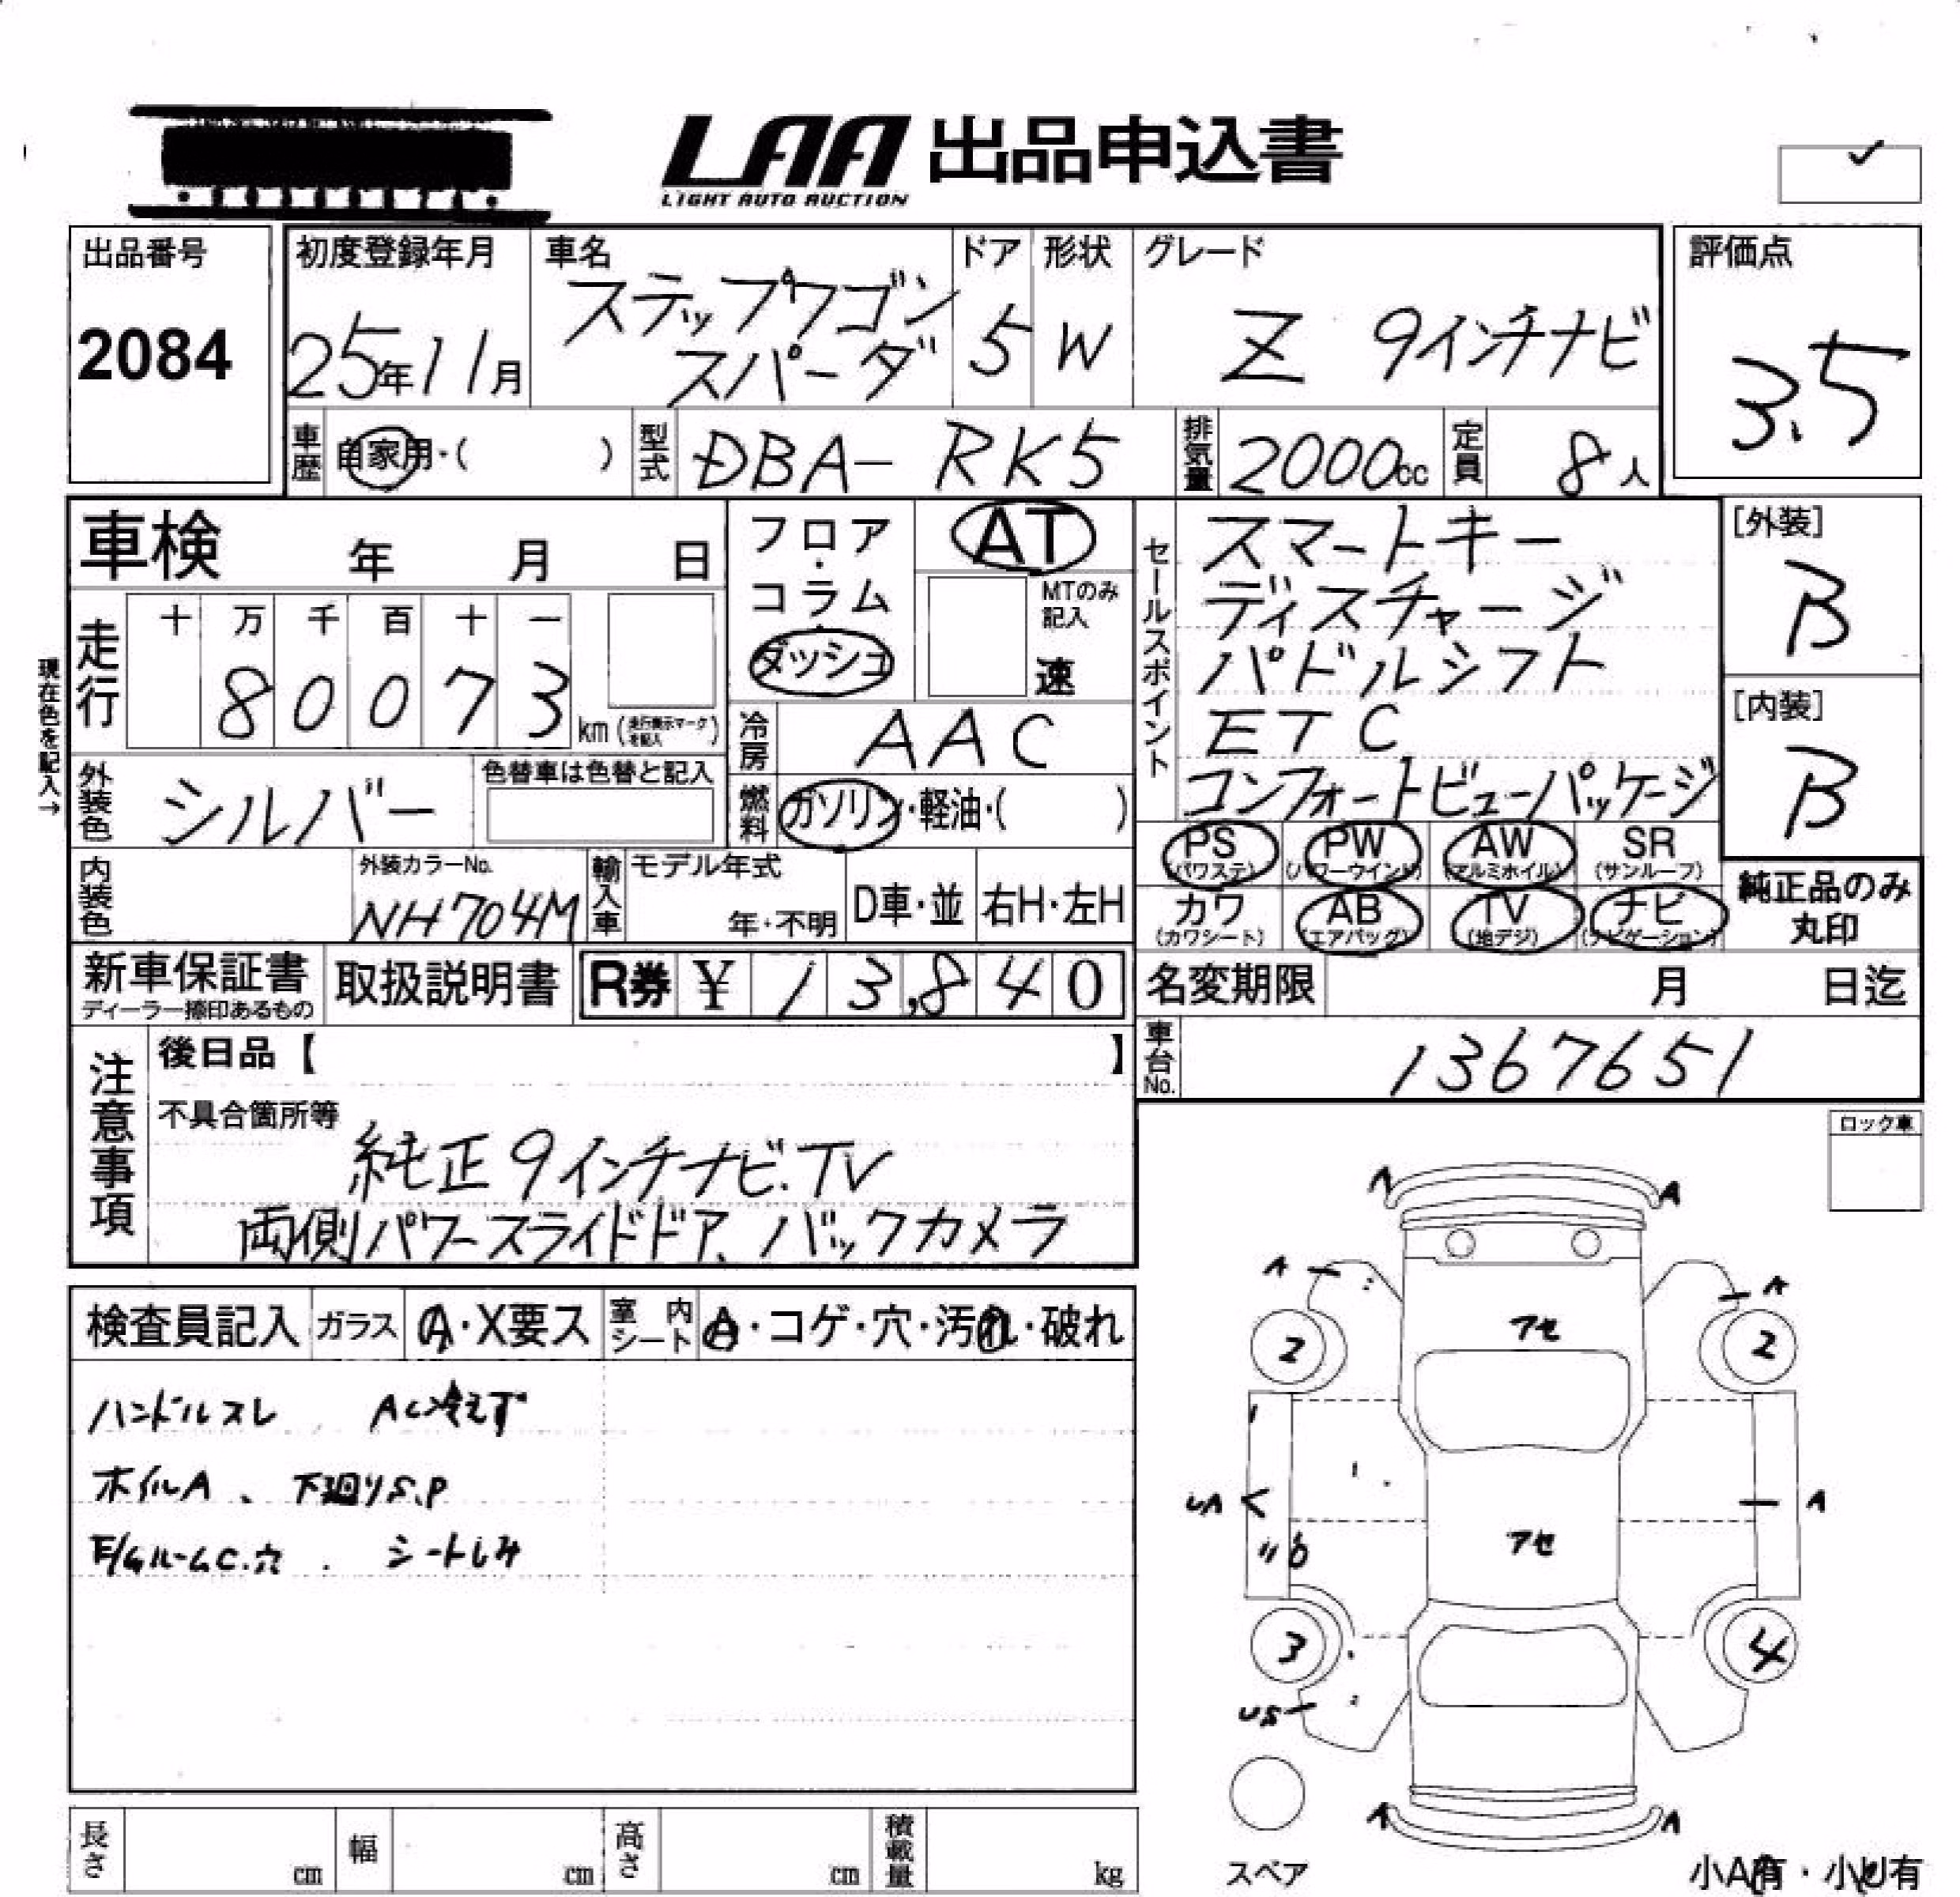 LAA 出品申込書
LIGHT AUTO AUCTION
出品番号
2084
初度登録年月
25年11月
車名
ステップワゴン
スパーダ
ドア
5
形状
W
グレード
Z 9インチナビ
評価点
3.5
車歴
自家用・( )
型式
DBA-RK5
排気量
2000cc
定員
8人
車検 年 月 日
フロア・
コラム・
ダッシュ
AT
MTのみ
記入
速
セールスポイント
スマートキー
ディスチャージ
パドルシフト
ETC
コンフォートビューパッケージ
[外装]
B
[内装]
B
現在色を記入→
走行
十 万 千 百 十 一
8 0 0 7 3 km (走行表示マークを記入)
冷房
AAC
外装色
シルバー
色替車は色替と記入
燃料
ガソリン・軽油・( )
PS (パワステ)
PW (パワーウインド)
AW (アルミホイル)
SR (サンルーフ)
カワ (カワシート)
AB (エアバッグ)
TV (地デジ)
ナビ (ナビゲーション)
純正品のみ
丸印
内装色
外装カラーNo.
NH704M
輸入車
モデル年式
年・不明
D車・並
右H・左H
新車保証書
ディーラー捺印あるもの
取扱説明書
R券 ¥ 13,840
名変期限 月 日迄
車台No.
1367651
注意事項
後日品【 】
不具合箇所等
純正9インチナビ.TV
両側パワースライドドア、バックカメラ
ロック車
検査員記入
ガラス
A・X要ス
室内シート
A・コゲ・穴・汚れ・破れ
ハンドルスレ、AC冷えず
ホイルA、下廻りS.P
E/GルームC.穴、シートしみ
A A
A A
2 アセ 2
UA A
アセ
3 4
US
A A
スペア
小A有・小U有
長さ cm
幅 cm
高さ cm
積載量 kg